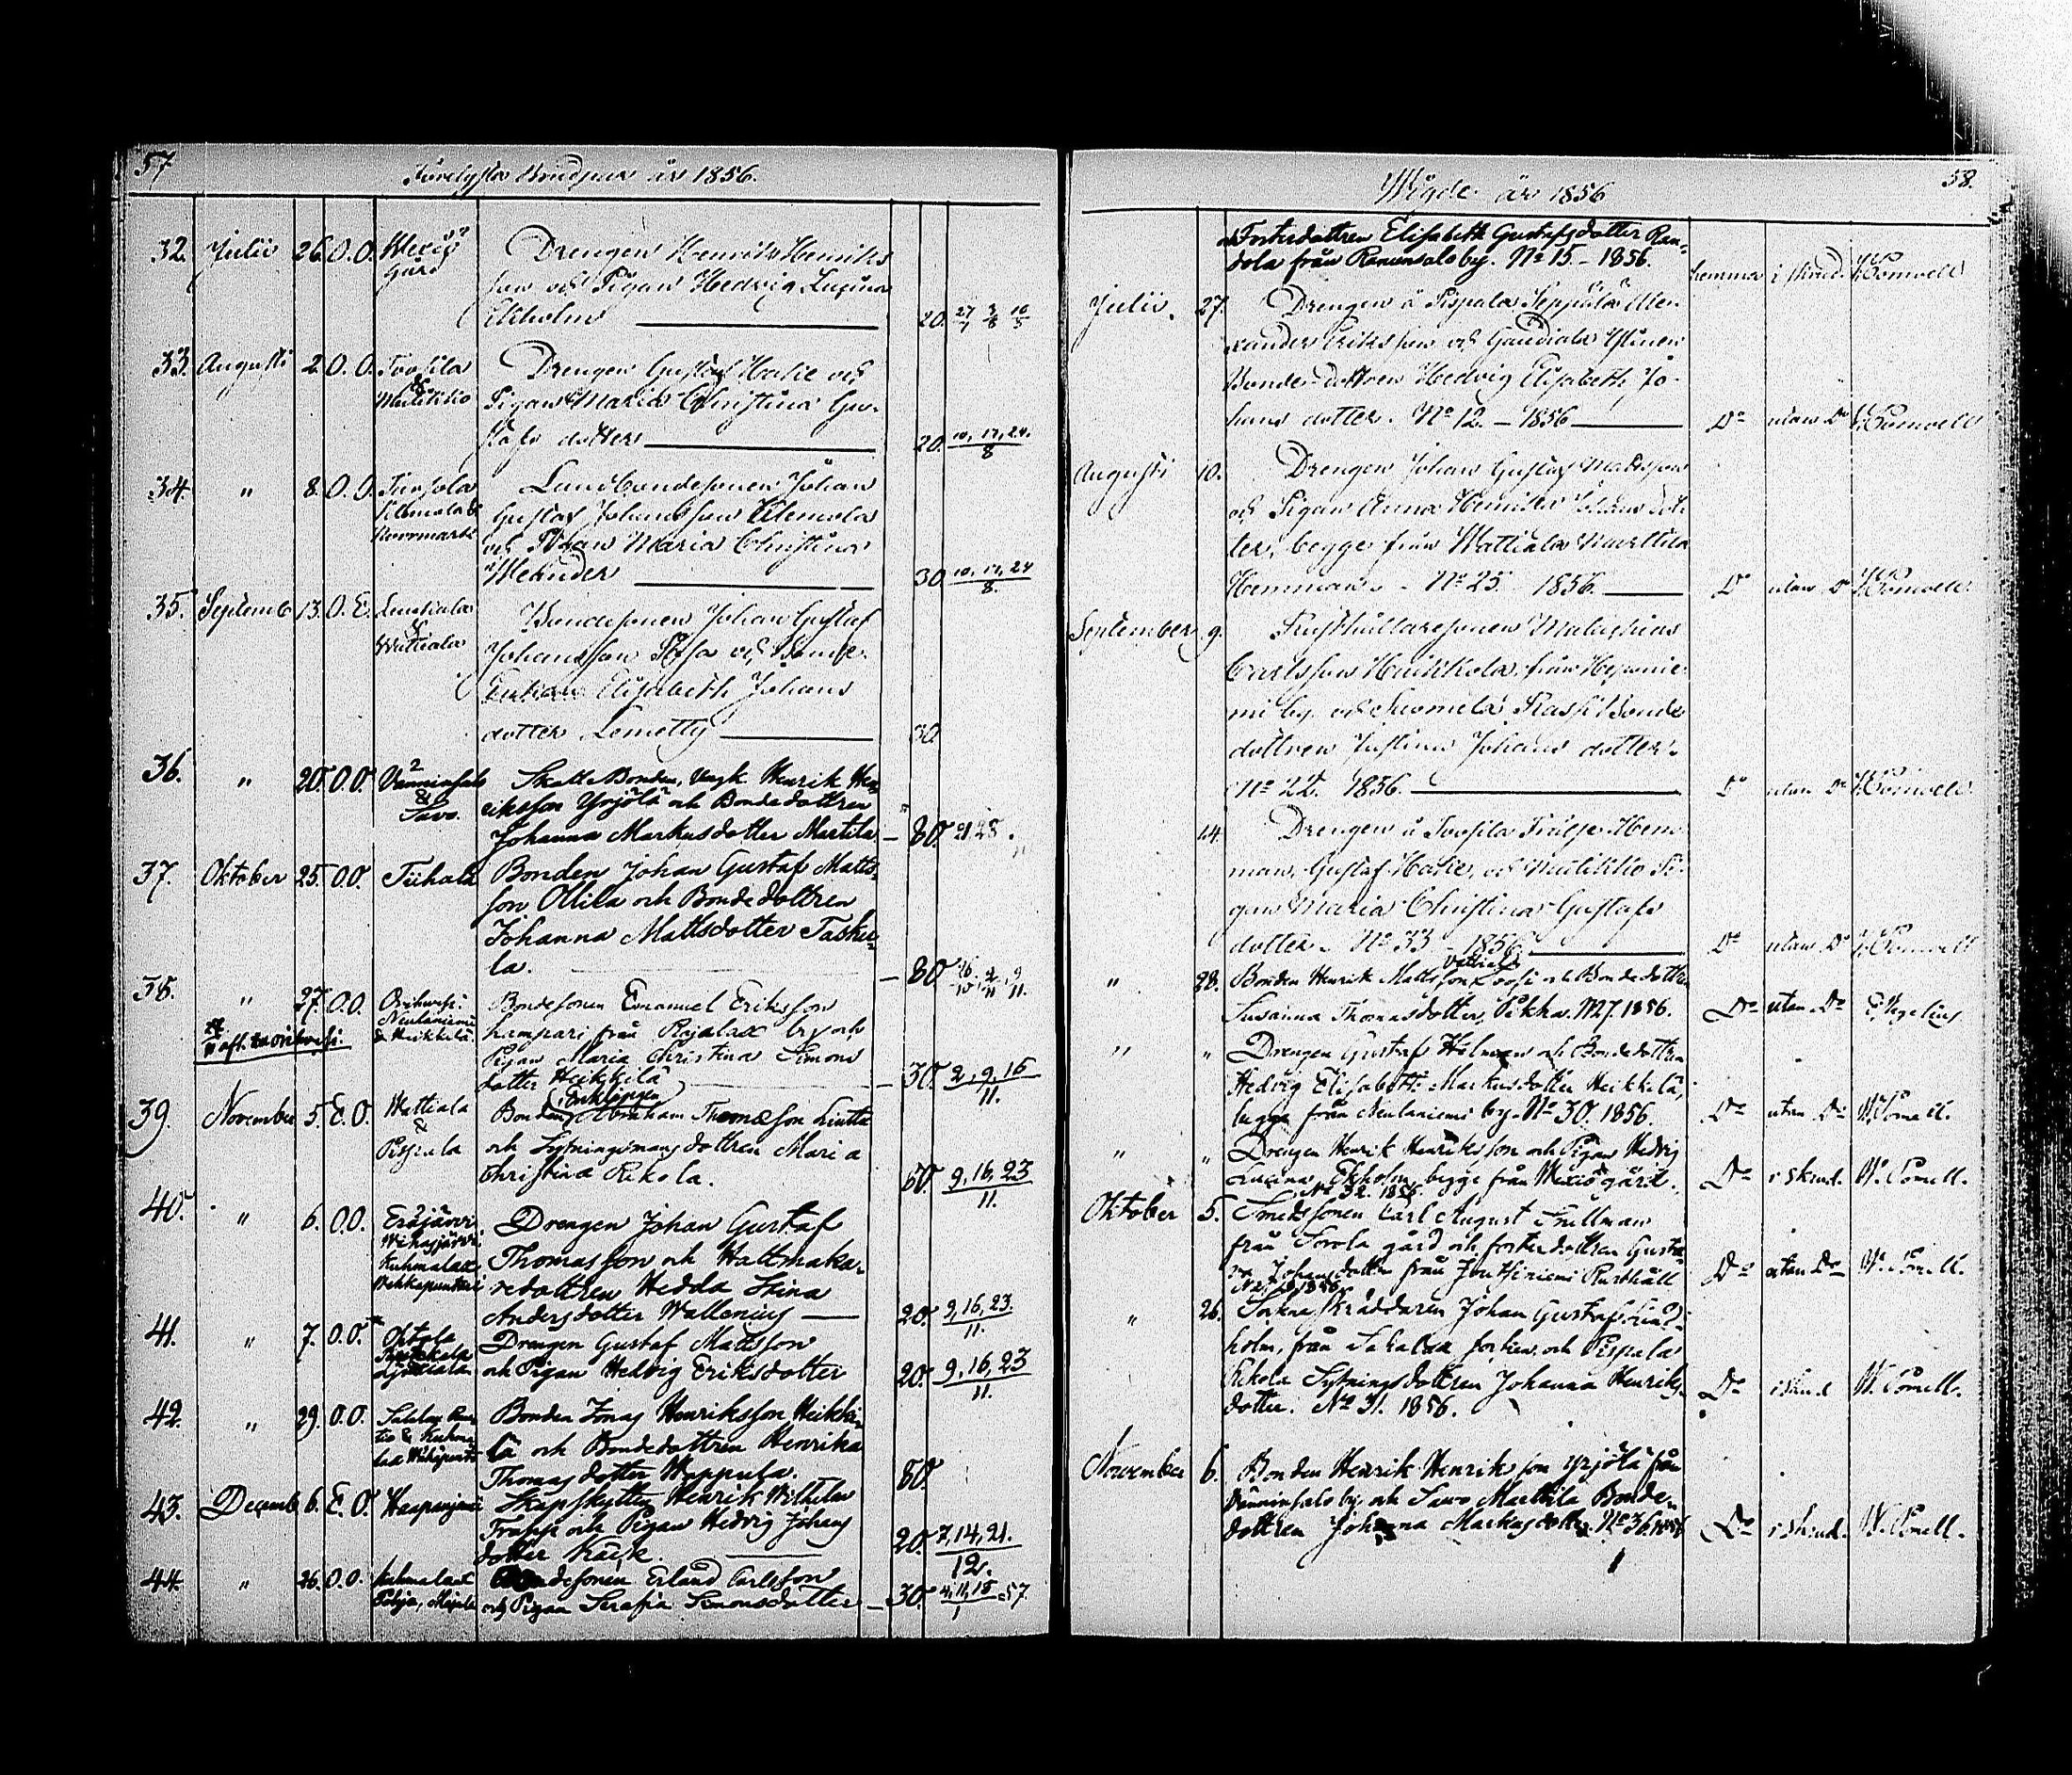 57
Förelyste Brudpar år 1856.
32. Julii 26. O. O. Wexiö gård
Drengen Henrik Henriks
son och Pigan Hedvig Lucina
Ekholm 20. 27/7 3/8 10/8
33. Augusti 2. O. O. Toosila & Mulikko
Drengen Gustaf Hasie och
Pigan Maria Christina Gu-
stafs dotter 20. 10, 17, 24./8
34. " 8. O. O. Tursola Klemola & Norrmark
Landbondesonen Johan
Gustaf Johansson Klemola
och Pigan Maria Christina
Welander 30. 10, 17, 24/8.
35. Septemb 13. O. E. & Wattiala
Bondesonen Johan Gustaf
Johansson och Bonde
Enkan Elisabeth Johans
dotter Lemetty 30.
36. " 20. O. O. Vänninsalo & Savo.
Skatte Bonden, Henrik Hen
riksson Yrjölä och Bondedottren
Johanna Markusdotter Marttila 80. 21, 28.
37. Oktober 25. O. O. Tiihala
Bonden Johan Gustaf Matts-
son Ollila och Bondedottren
Johanna Mattsdotter Taske-
la. 80. 26/10, 2/11, 9/11.
38. " 27. O. O. Orihvesi: Neulaniemi & Heikkilä.
Bondesonen Emanuel Eriksson
hampari från Rajalax by och
Pigan Maria Christina Simons
dotter Heikkilä 30. 2, 9, 16/11.
39. November 5. E. O. Wattiala & Pispala
Bonden Enklingen Abraham Thomasson Liutta
och Sytningsmans dottren Maria
Christina Rikola. 60. 9, 16, 23/11.
40. " 6. O. O. Eräjärvi Wihasjärvi Kuhmalax Wehkapuntari
Drengen Johan Gustaf
Thomasson och Hattmaka-
redottren Hedda Stina
Andersdotter Wallenius 20. 9, 16, 23./11.
41. " 7. O. O.
Drengen Gustaf Mattsson
och Pigan Hedvig Eriksdotter 20. 9, 16, 23/11.
42. " 29. O. O.
Bonden Jonas Henriksson Heikki-
lä och Bondedottren Henrika
Thomasdotter Wappula. 80.
43. Decemb 6. E. O. Haapaniemi
Skarpskytten Henrik Wilhelm
Trapp och Pigan Hedvig Johans
dotter Käck. 20. 7, 14, 21./12.
44. " 26. O. O. Kuhmalax Pohja,
Bondesonen Erland Carlsson
och Pigan Serafia Simonsdotter 30. 4, 11, 18/1 57.
58.
Wigde år 1856
Fosterdottren Elisabeth Gustafsdotter Ran-
dola från Ramunsalo by. No 15. - 1856. hemma i skrud. W. Pomell
Julii. 27. Drengen å Pispala Seppälä Alex-
ander Eriksson och Gaudiala Yhinen
Bonde-dottren Hedvig Elisabeth Jo-
hans dotter. No 12. - 1856 Do utan Do W. Pomell
Augusti 10. Drengen Johan Gustaf Mattsson
och Pigan Anna Henrika Johans dot-
ter, begge från Wattiala Knuttila
Hemman. - No 25. 1856. Do utan Do W. Pomell
September 9. Rusthållaresonen Malachias
Carlsson Huikkola från Heponie-
mi by. och Suomela Rassi Bonde
dottren Justina Johans dotter.
No 22. 1856. Do utan Do W. Pomell
14. Drengen å Toosila Frälse-Hem-
man, Gustaf Hasie, och Mulikko Pi-
gan Maria Christina Gustafs
dotter. No 33 - 1856. Do utan Do W. Pomell
" 28. Bonden Henrik Mattsson Wattiala och Bondedottren
Susanna Thomasdotter, No 7. 1856. Do utan Do
" " Drengen Gustaf Holmen och Bondedottren
Hedvig Elisabeth Markusdotter Heikkilä,
begge från Neulaniemi by. No 30. 1856. Do utan Do W. Pomell.
" " Drengen Henrik Henriksson och Pigan Hedvig
Lucina Ekholm begge från Wexiö gård. No 32. 1856. Do i skrud. W. Pomell.
Oktober 5. Smedssonen Carl August Snellman
från Sorola gård och fosterdottren Gusta-
va Johansdotter från Juutsiniemi Rusthåll Do utan Do W. Pomell.
" 26. Sockne Skräddaren Johan Gustaf Lind-
holm, från Sahalax socken och Pispala
Eskola Sytningsdottren Johanna Henriks-
dotter. No 31. 1856. Do i skrud W. Pomell.
November 6. Bonden Henrik Henriksson Yrjölä från
Vänninsalo by och Savo Marttila Bonde-
dottren Johanna Markusdotter. No 36 1856 Do i skrud. W. Pomell.